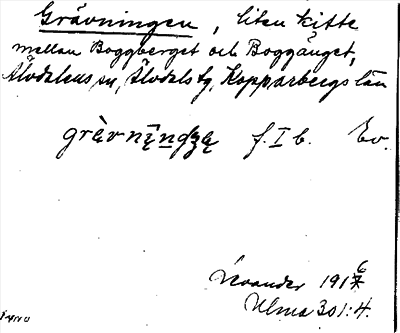 Grävningen, liten kitte
mellan Boggberget och Boggänget,
Älvdalens sn, Älvdals tg, Kopparbergs län
grævnīngʒę f. I b. Ev.
Levander 1916
Ulma 301:4.